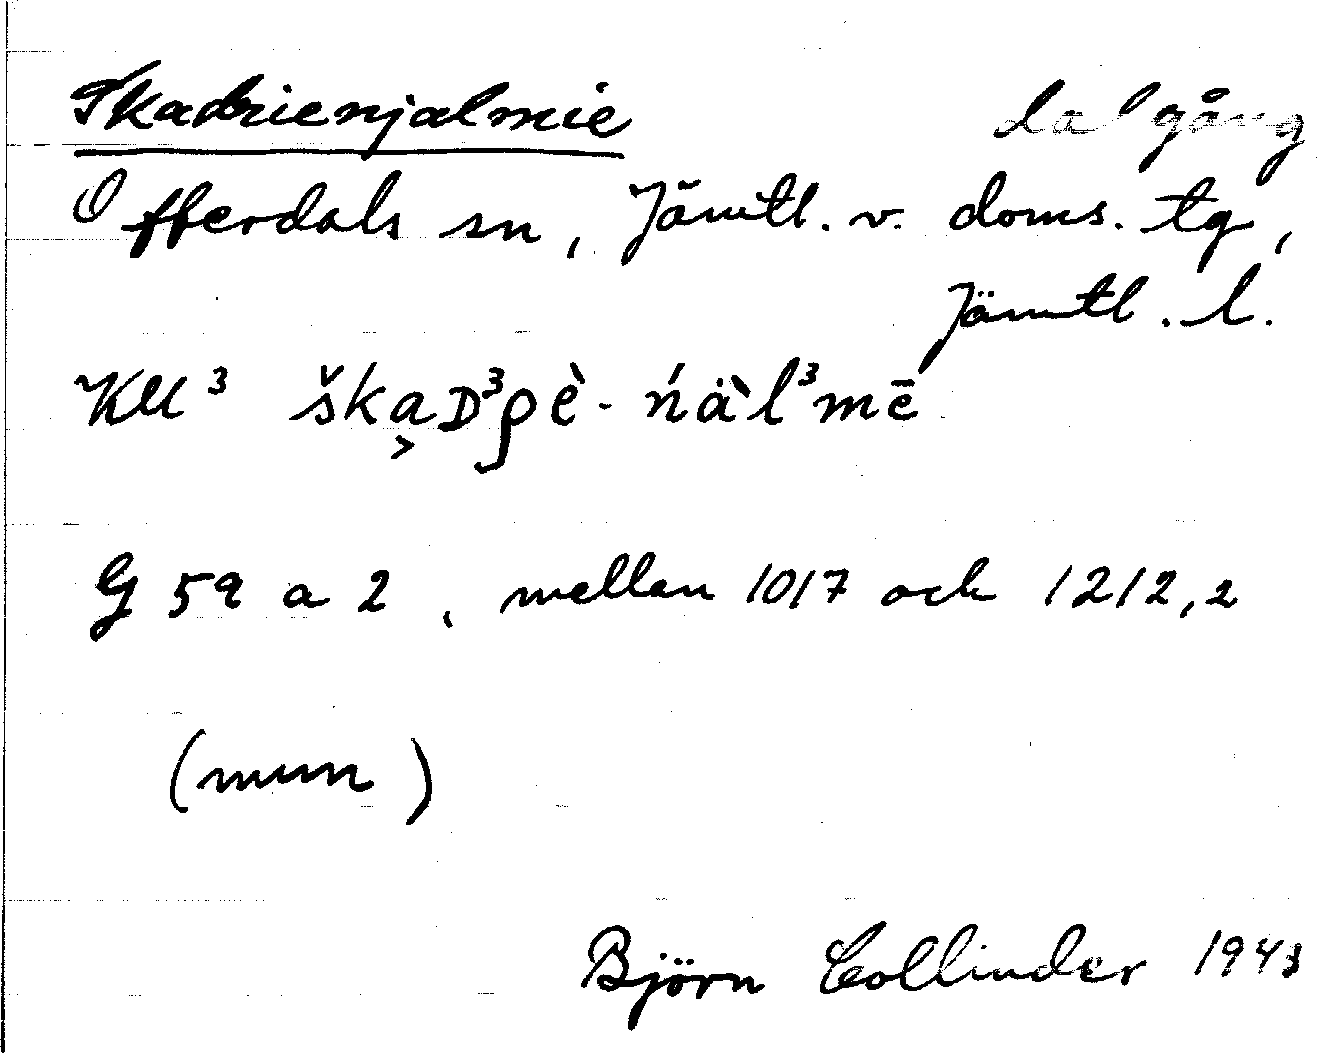 Skadrienjalmie dalgång
Offerdals sn, Jämtl. v. doms. tg,
Jämtl. l.
KM³ ška̬D³ρè-ńä̀l³mē
G 59 a 2, mellan 1017 och 1212,2
(mun)
Björn Collinder 1943